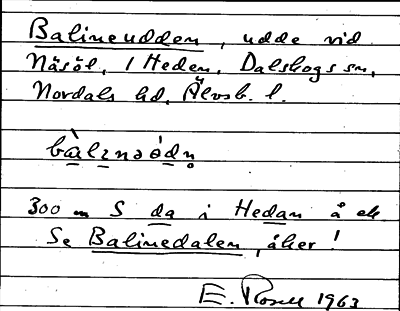 Balineudden, udde vid
Näsöl, 1 Heden, Dalskogs sn,
Nordals hd, Älvsb. l.
300 m S da i Hedan å ek
Se Balinedalen, åker!
E. Rosell 1963